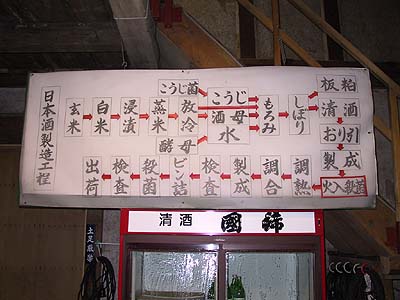 日本酒製造工程
玄米
白米
浸漬
蒸米
放冷
こうじ菌
酵母
こうじ
酒母
水
もろみ
しぼり
板粕
清酒
おり引
製成
火入殺菌
調熟
調合
製成
検査
ビン詰
殺菌
検査
出荷
清酒 國師
土足厳禁